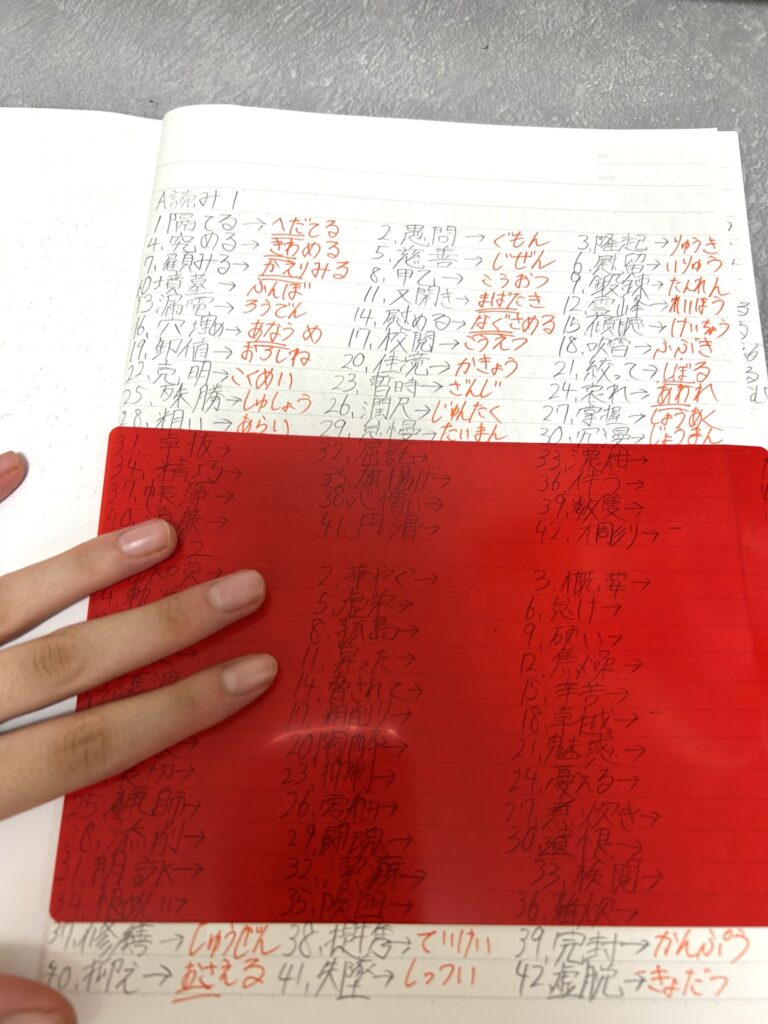 A読み 1
1.隔てる→へだてる 2.愚問→ぐもん 3.隆起→りゅうき
4.究める→きわめる 5.慈善→じぜん 6.慰留→いりゅう
7.顧みる→かえりみる 8.甲乙→こうおつ 9.鍛錬→たんれん
10.墳墓→ふんぼ 11.又聞き→またぎき 12.霊峰→れいほう
13.漏電→ろうでん 14.慰める→なぐさめる 15.傾聴→けいちょう
16.穴埋め→あなうめ 17.校閲→こうえつ 18.吹雪→ふぶき
19.卸値→おろしね 20.佳境→かきょう 21.絞って→しぼる
22.克明→こくめい 23.暫時→ざんじ 24.哀れ→あわれ
25.殊勝→しゅしょう 26.潤沢→じゅんたく 27.掌握→しょうあく
28.粗い→あらい 29.怠慢→たいまん 30.冗漫→じょうまん
31.卓抜→ 32.屈託→ 33.濃紺→
34.精巧→ 35.旗揚げ→ 36.伴う→
37. 38.心憎い→ 39.数隻→
40. 41.円滑→ 42.木彫り→
2
2.華やぐ→ 3.概要→
4. 5.虚栄→ 6.怠け→
8.孤島→ 9.硬い→
11.昇った→ 12.焦燥→
14.脅されて→ 15.辛苦→
17.粗削り→ 18.卓越→
20.陶酔→ 21.魅惑→
23.抑制→ 24.憂える→
25. 26.零細→ 27.煮炊き→
28.添削→ 29.闘魂→ 30.遺恨→
31.朗詠→ 32.潔癖→ 33.検閲→
34. 35. 36.
37.修繕→しゅうぜん 38. →ていけい 39.完封→かんぷう
40.抑え→おさえる 41.失墜→しっつい 42.虚脱→きょだつ